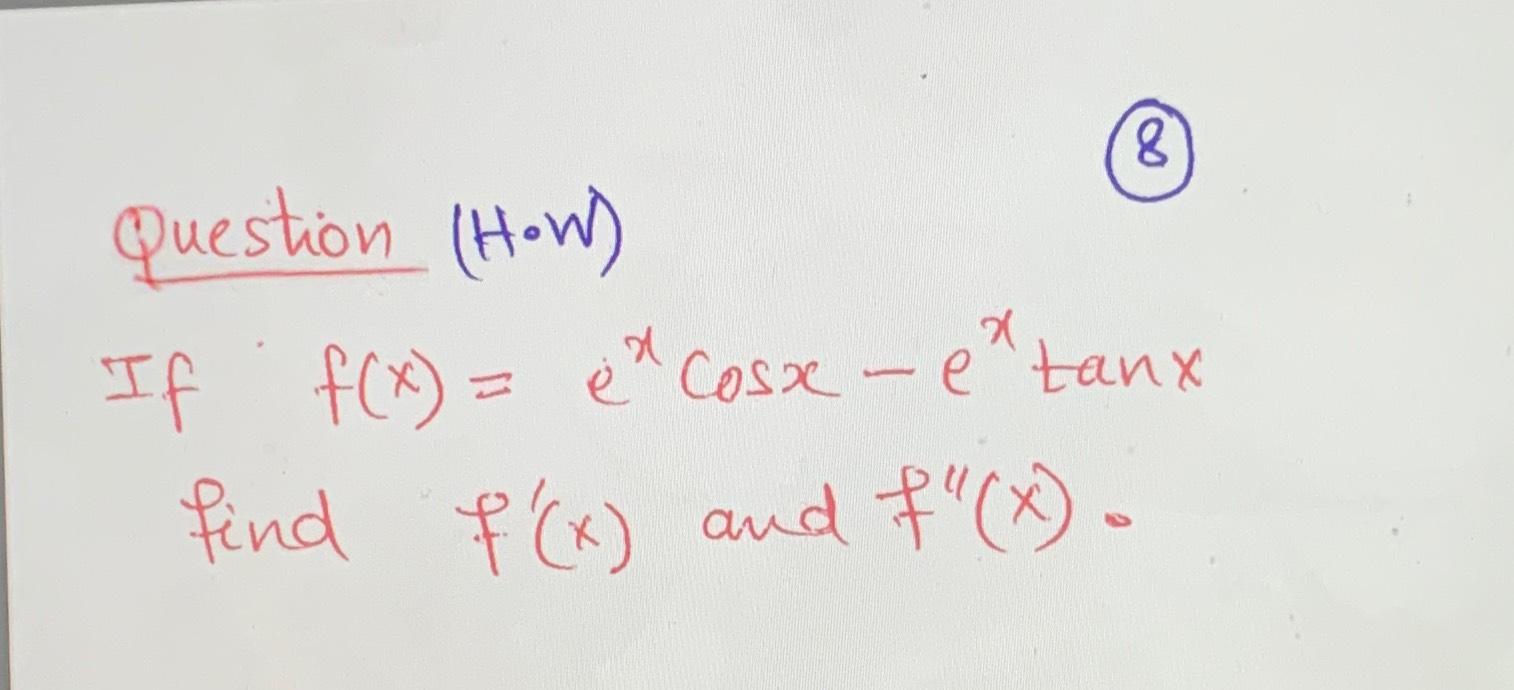 8
Question (H.W)
If f(x) = eˣ Cosx − eˣ tanx
find f'(x) and f"(x).